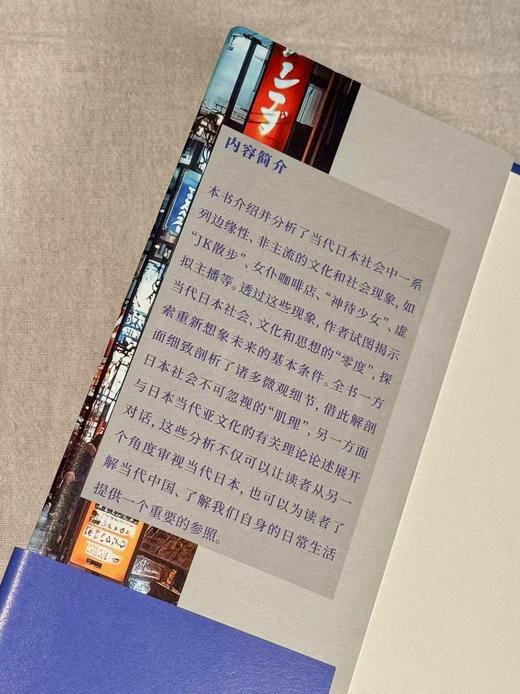 内容简介
本书介绍并分析了当代日本社会中一系
列边缘性、非主流的文化和社会现象，如
“JK散步”、女仆咖啡店、“神待少女”、虚
拟主播等。透过这些现象，作者试图揭示
当代日本社会、文化和思想的“零度”，探
索重新想象未来的基本条件。全书一方
面细致剖析了诸多微观细节，借此解剖
日本社会不可忽视的“肌理”，另一方面
与日本当代亚文化的有关理论论述展开
对话，这些分析不仅可以让读者从另一
个角度审视当代日本，也可以为读者了
解当代中国、了解我们自身的日常生活
提供一个重要的参照。